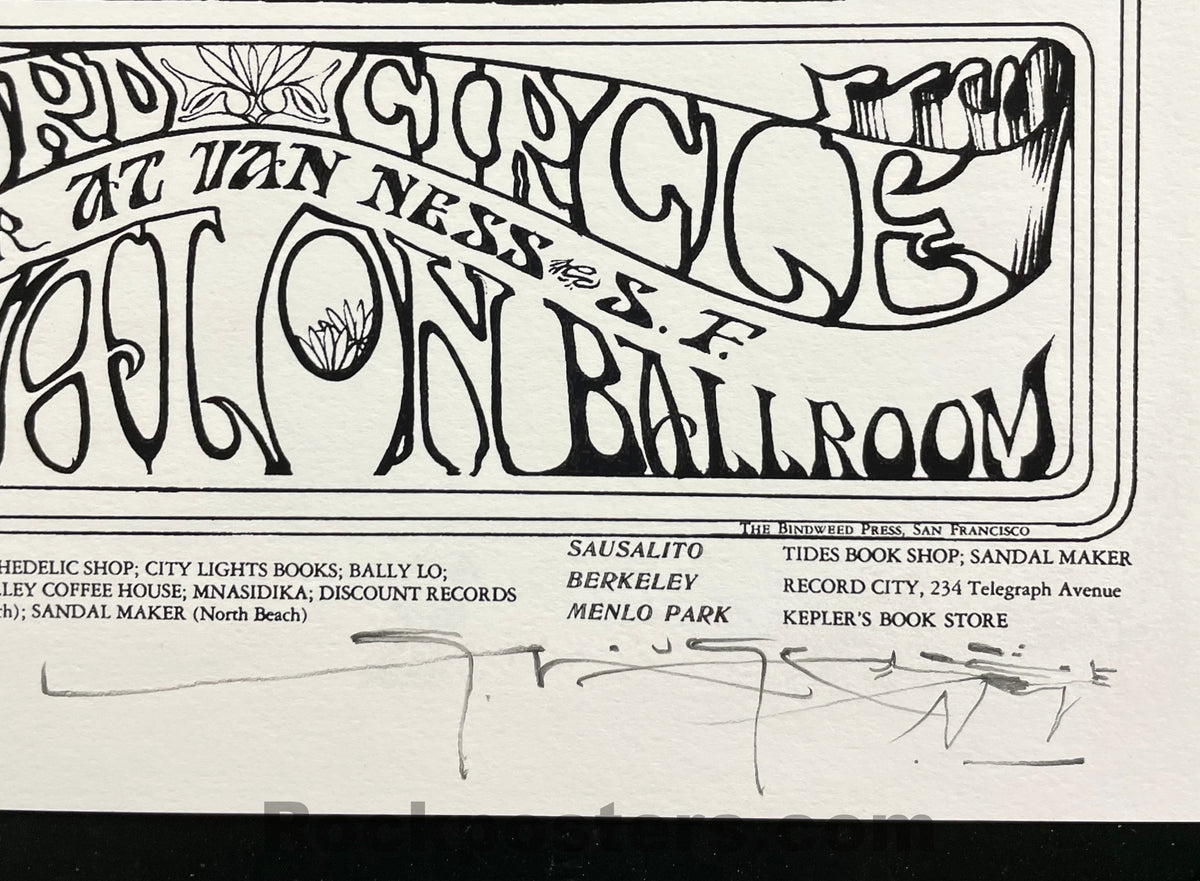 RD CIRCLE
R AT VAN NESS S. F.
ALON BALLROOM
THE BINDWEED PRESS, SAN FRANCISCO
HEDELIC SHOP; CITY LIGHTS BOOKS; BALLY LO;
LEY COFFEE HOUSE; MNASIDIKA; DISCOUNT RECORDS
th); SANDAL MAKER (North Beach)
SAUSALITO TIDES BOOK SHOP; SANDAL MAKER
BERKELEY RECORD CITY, 234 Telegraph Avenue
MENLO PARK KEPLER'S BOOK STORE
Rockposters.com